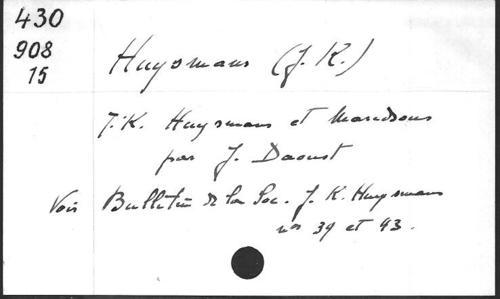 430
908
15
Huysmans (J. K.)
J.K. Huysmans et Maredsous
par J. Daoust
Voir Bulletin de la Soc. J. K. Huysmans
nos 39 et 43.